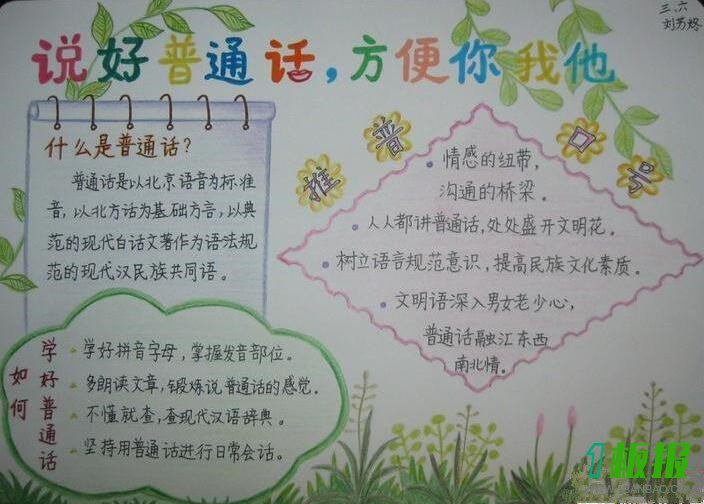 三、六
刘芳烙
说好普通话,方便你我他
什么是普通话?
普通话是以北京语音为标准
音,以北方话为基础方言,以典
范的现代白话文著作为语法规
范的现代汉民族共同语。
推普口号
情感的纽带,
沟通的桥梁。
人人都讲普通话,处处盛开文明花。
树立语言规范意识,提高民族文化素质。
文明语深入男女老少心,
普通话融汇东西
南北情。
如何
学好普通话
学好拼音字母,掌握发音部位。
多朗读文章,锻炼说普通话的感觉。
不懂就查,查现代汉语辞典。
坚持用普通话进行日常会话。
1板报